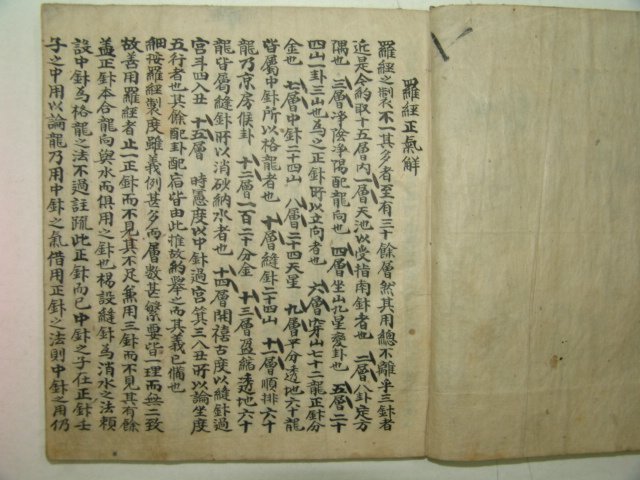 羅經正氣解
羅經之製不一其多者至有三十餘層然其用總不離乎三針者
近是今約取十五層內一層天池以受指南針者也 二層八卦定方
隅也 三層淨陰淨陽配龍向也 四層坐山九星變卦也 五層二十
四山一卦三山也為之正針所以立向者也 六層穿山七十二龍正針分
金也 七層中針二十四山 八層二十四天星 九層平分透地六十龍
皆屬中針所以格龍者也 十層縫針二十四山 十一層順排六十
龍乃京房候卦 十二層一百二十分金 十三層盈縮透地六十
龍皆屬縫針所以消砂納水者也 十四層開禧古度以縫針過
宮斗四入丑 十五層 時憲度以中針過宮箕三入丑所以論坐度
五行者也其餘配卦配宿皆由此推故約舉之而其義已備也
細按羅經製度雖義例甚多而層數甚繁要皆一理而無二致
故善用羅經者止一正針而不見其不足兼用三針而不見其有餘
蓋正針本合龍向與水而俱用之針也楊設縫針為消水之法賴
設中針為格龍之法不過註疏此正針而已中針之子在正針壬
子之中用以論龍乃用中針之氣借用正針之法則中針之用仍